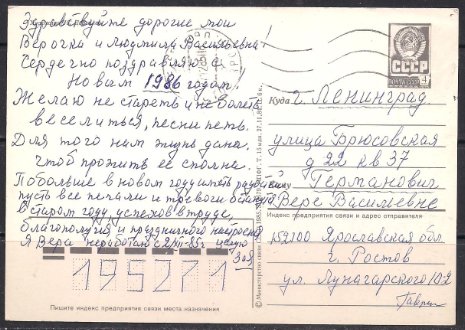 Здравствуйте дорогие мои
Верочка и Людмила Васильевна!
Сердечно поздравляю с
Новым 1986 годом.
Желаю не стареть и не болеть
веселиться, песни петь.
Для того нам жизнь дана,
чтоб прожить её сполна.
Побольше в новом году
пусть все печали и тревоги
В старом году, успехов в труде,
благополучия и праздничного настроен
Я Вера не работаю с
Зоя
СССР
Куда г. Ленинград
улица Брюсовская
д 22 кв 37
Германович
Вере Васильевне
Индекс предприятия связи и адрес отправителя
152100 Ярославская обл
г. Ростов
ул. Луначарского 102
195271
Пишите индекс предприятия связи места назначения
© Министерство связи СССР